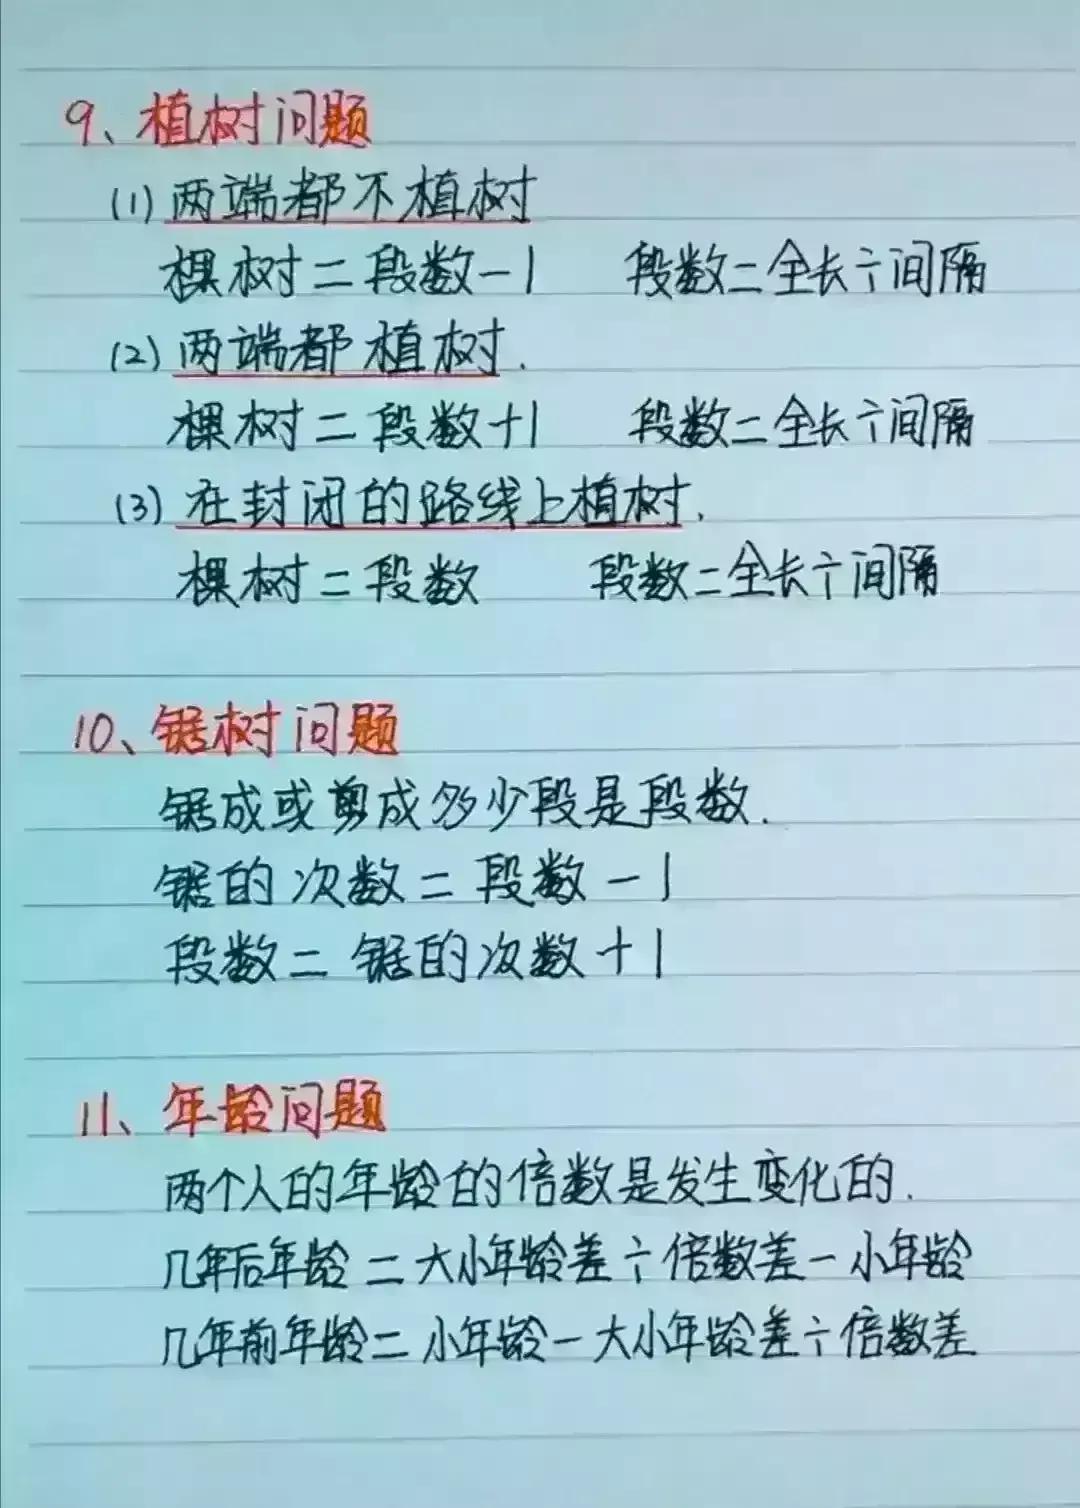 9、植树问题
(1)两端都不植树
棵树=段数-1 段数=全长÷间隔
(2)两端都植树.
棵树=段数+1 段数=全长÷间隔
(3)在封闭的路线上植树.
棵树=段数 段数=全长÷间隔
10、锯树问题
锯成或剪成多少段是段数.
锯的次数=段数-1
段数=锯的次数+1
11、年龄问题
两个人的年龄的倍数是发生变化的.
几年后年龄=大小年龄差÷倍数差-小年龄
几年前年龄=小年龄-大小年龄差÷倍数差